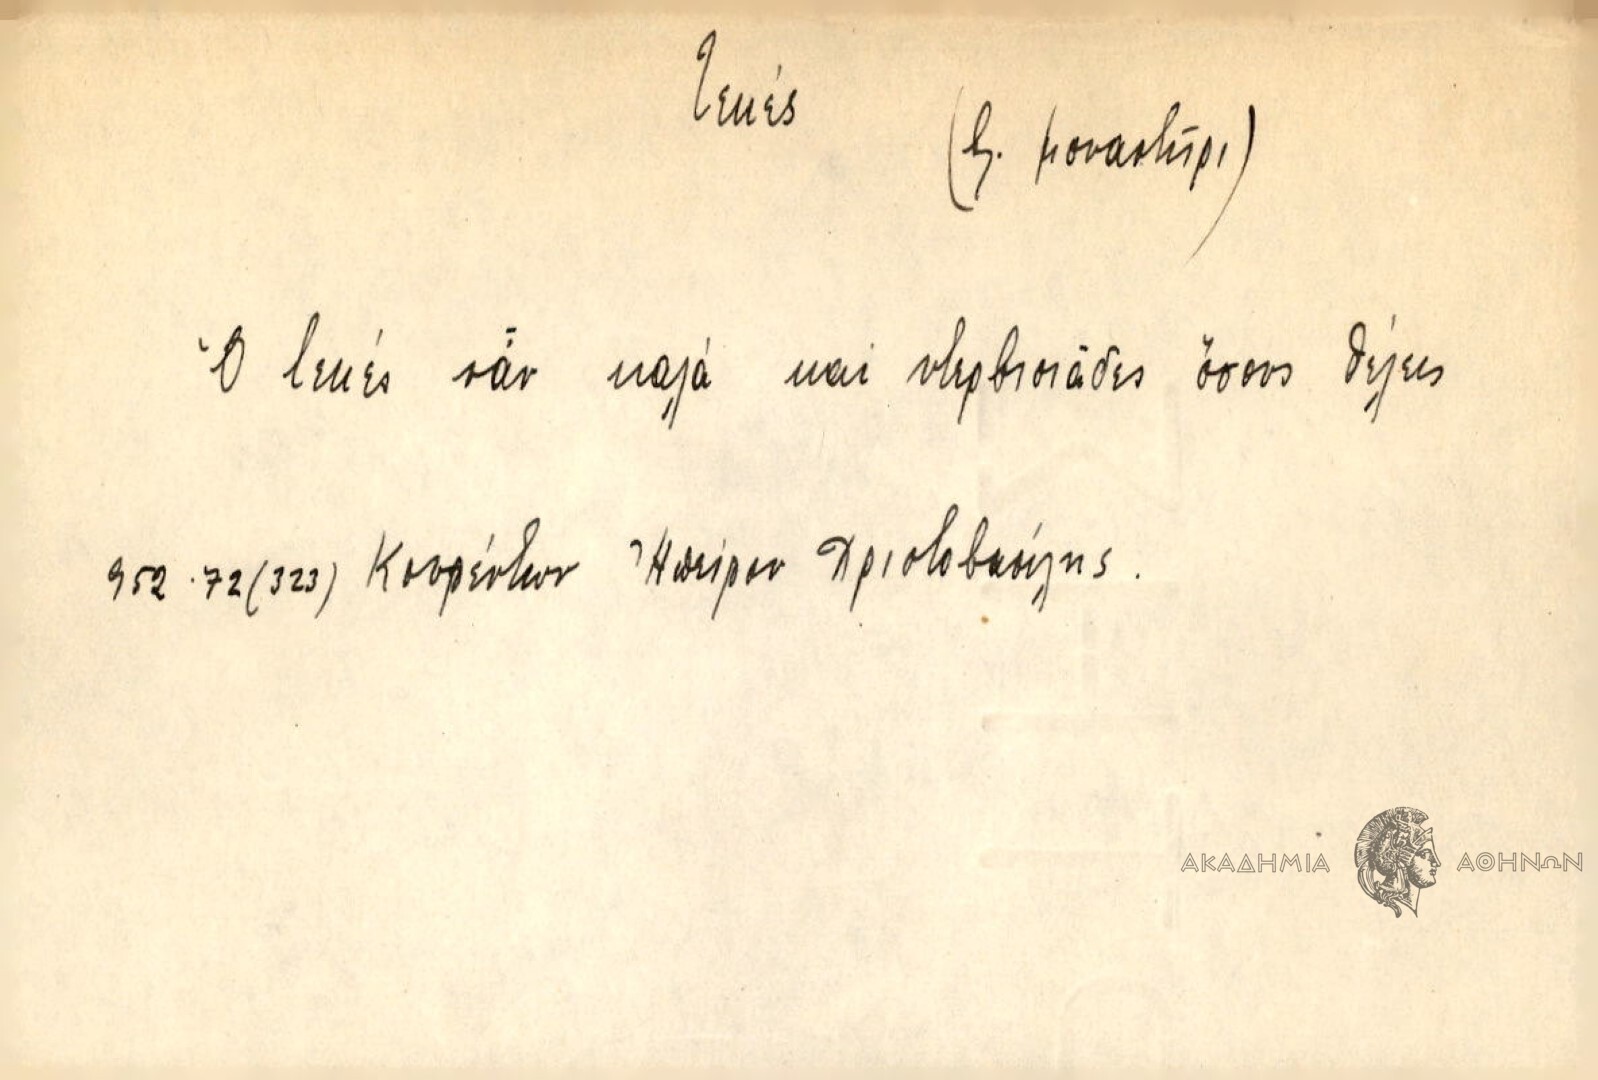 Τεκές
(βλ. μοναστήρι)
Ὁ τεκές νἆν καλά καί ντερβισιᾶδες ὅσους θέλεις
952.72 (323) Κουρέντων Ἠπείρου Χριστοβασίλης.
ΑΚΑΔΗΜΙΑ ΑΘΗΝΩΝ